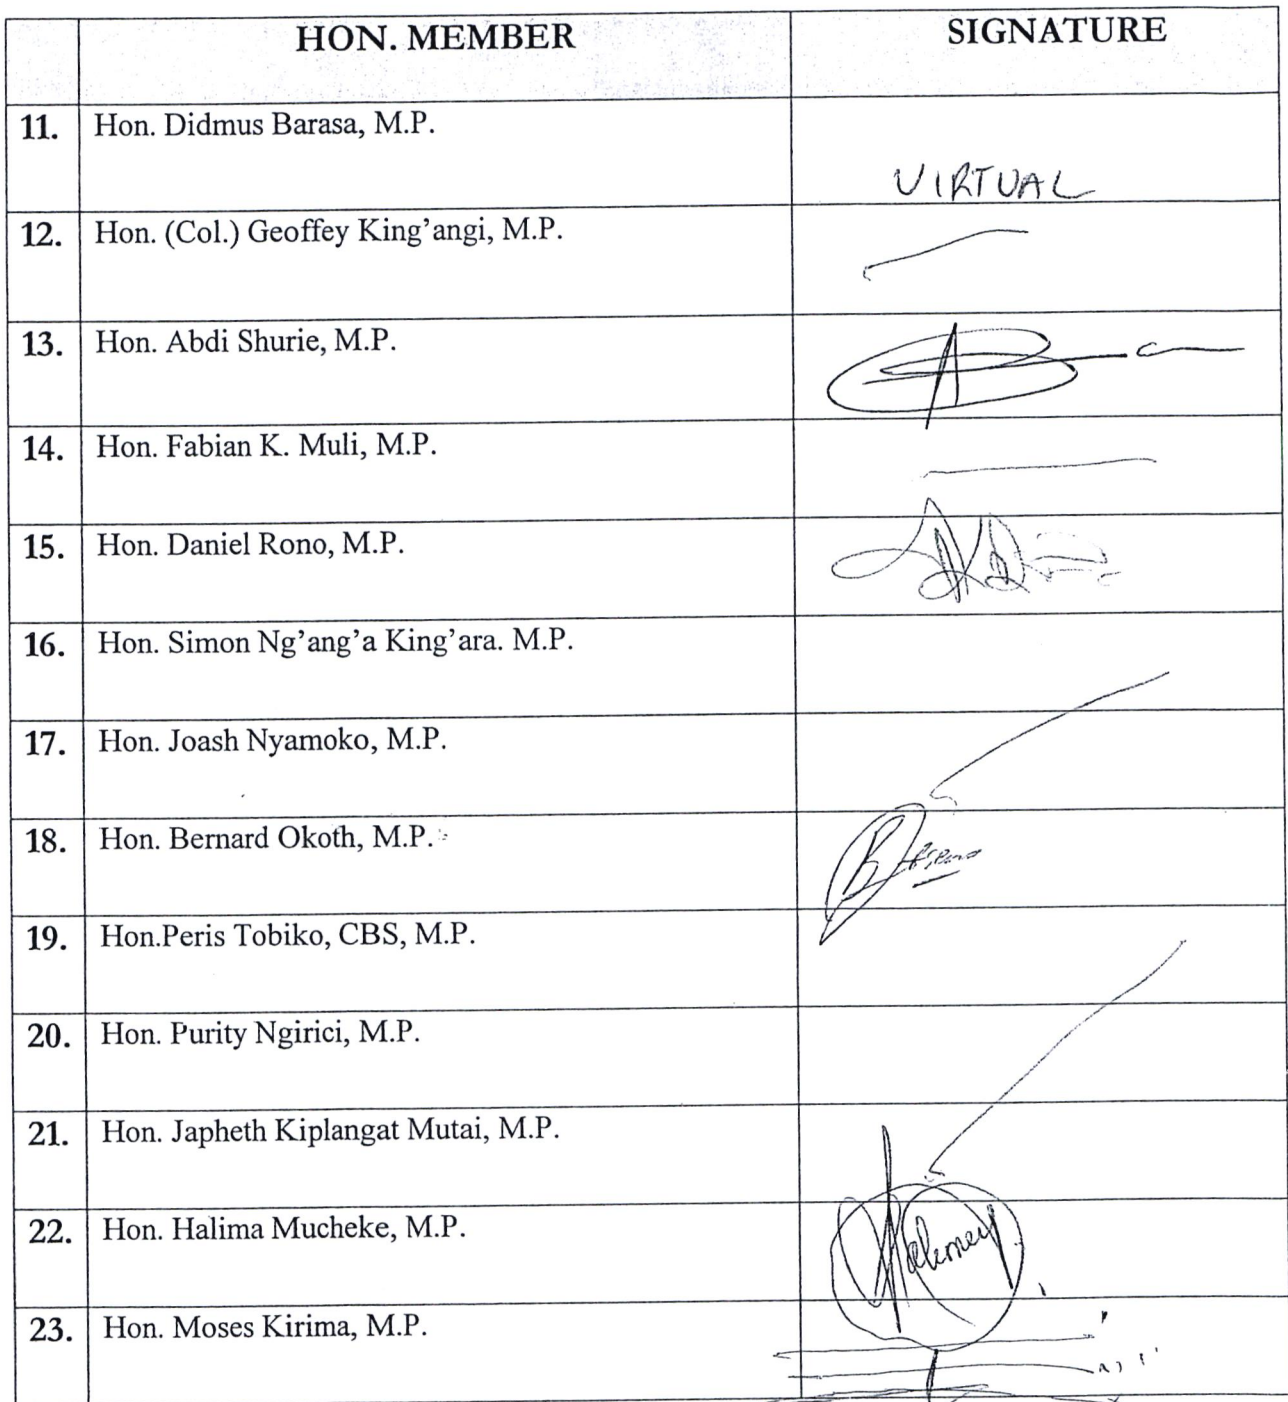 HON. MEMBER SIGNATURE
11. Hon. Didmus Barasa, M.P.
VIRTUAL
12. Hon. (Col.) Geoffey King'angi, M.P.
13. Hon. Abdi Shurie, M.P.
14. Hon. Fabian K. Muli, M.P.
15. Hon. Daniel Rono, M.P.
16. Hon. Simon Ng'ang'a King'ara. M.P.
17. Hon. Joash Nyamoko, M.P.
18. Hon. Bernard Okoth, M.P.
19. Hon.Peris Tobiko, CBS, M.P.
20. Hon. Purity Ngirici, M.P.
21. Hon. Japheth Kiplangat Mutai, M.P.
22. Hon. Halima Mucheke, M.P.
23. Hon. Moses Kirima, M.P.